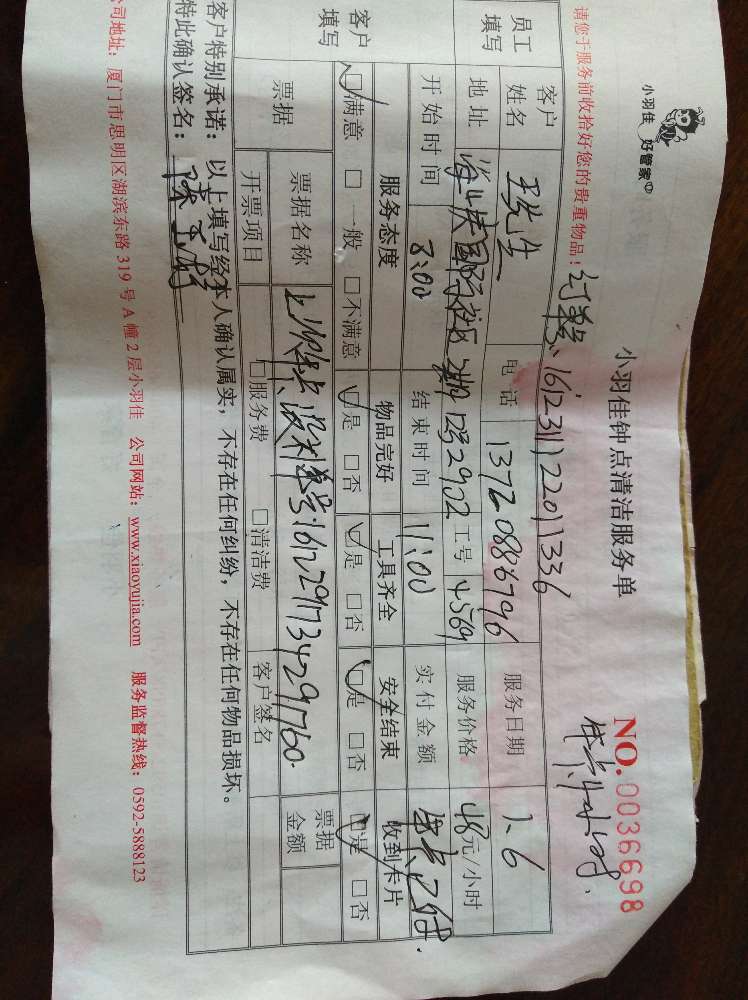 小羽佳 好管家
小羽佳钟点清洁服务单
NO. 0036698
请您于服务前收拾好您的贵重物品！
订单号：1612311122011336
员工填写
客户姓名 王先生 电话 13720886796 服务日期 1.6
地址 海峡国际社区 2902 工号 4569 服务价格 48元/小时
开始时间 8:00 结束时间 11:00 实付金额
客户填写
服务态度 物品完好 工具齐全 安全结束 收到卡片
☑满意 □一般 □不满意 ☑是 □否 ☑是 □否 ☑是 □否 ☑是 □否
票据
票据名称 上次 单号:1612291734291760. 票据金额
开票项目 □服务费 □清洁费 客户签名
客户特别承诺：以上填写经本人确认属实，不存在任何纠纷，不存在任何物品损坏。
特此确认签名：
公司地址：厦门市思明区湖滨东路 319 号 A 幢 2 层小羽佳 公司网站：www.xiaoyujia.com 服务监督热线：0592-5888123